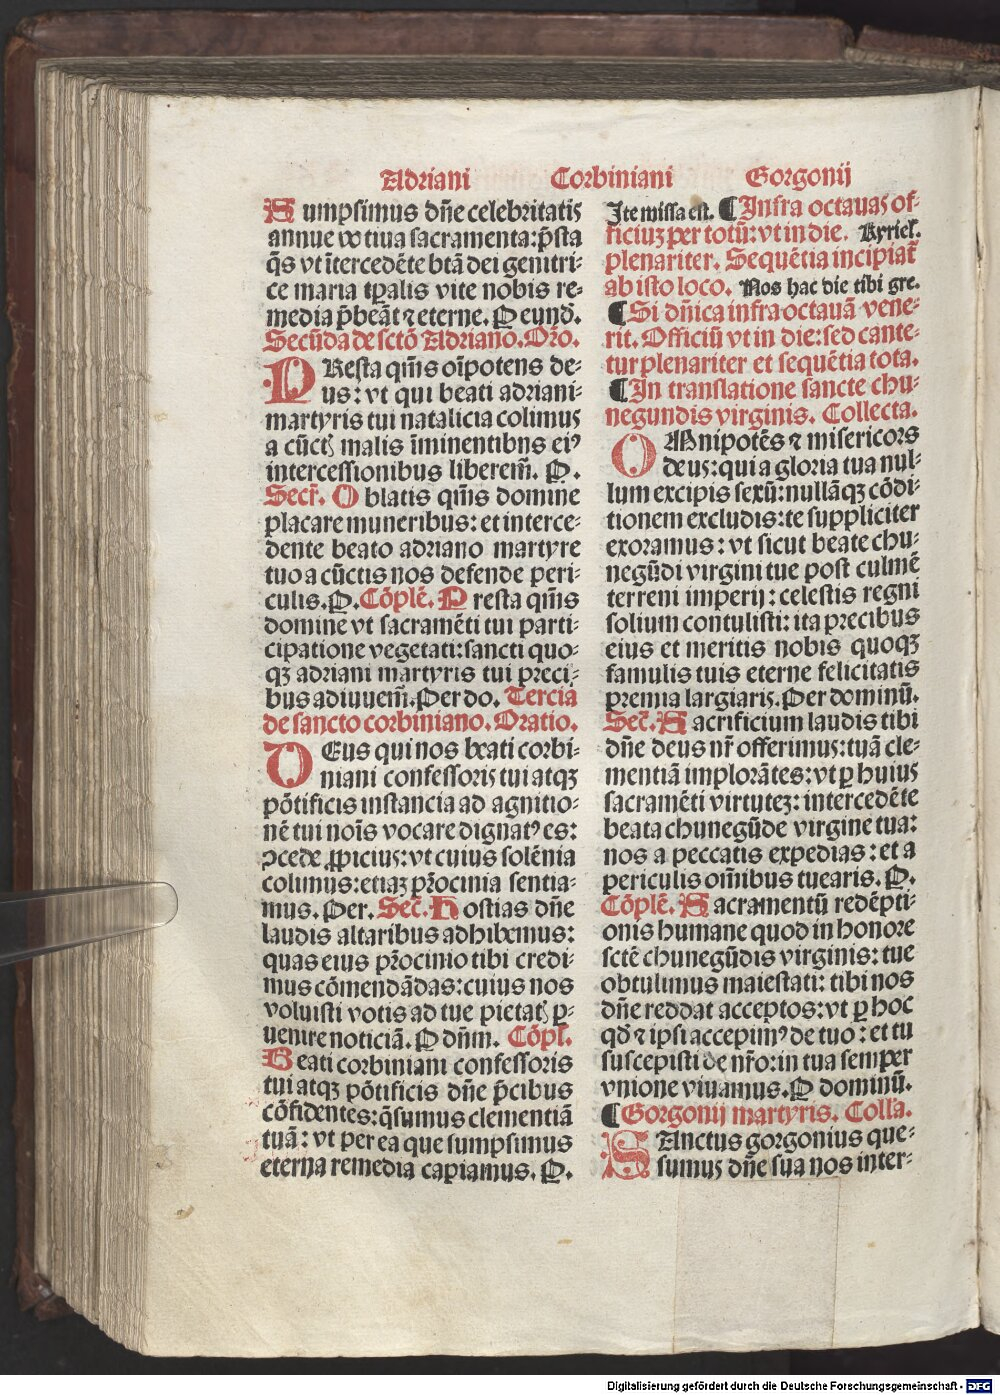 Adriani Corbiniani Gorgonij
Sumpsimus dn̄e celebritatis
annue votiua sacramenta: p̄sta
q̄s vt īntercedēte btā dei genitri-
ce maria tp̄alis vite nobis re-
media p̄beāt ⁊ eterne. P eund.
Secūda de sctō Adriano. Or̄o.
PResta qm̄s oīpotens de-
us: vt qui beati adriani-
martyris tui natalicia colimus
a cūctꝭ malis īminentibns eiꝰ
intercessionibus liberem̄. P.
Secr̄. Oblatis qm̄s domine
placare muneribus: et interce-
dente beato adriano martyre
tuo a cūctis nos defende peri-
culis. P. Cōplē. Presta qm̄s
domine vt sacramēti tui parti-
cipatione vegetati: sancti quo-
qꝫ adriani martyris tui preci-
bus adiuuem̄. Per do. Tercia
de sancto corbiniano. Oratio.
DEus qui nos beati corbi-
niani confessoris tui atqꝫ
pōtificis instancia ad agnitio-
nē tui noīs vocare dignatꝰ es:
ↄcede ꝓpicius: vt cuius solēnia
colimus: etiaꝫ pr̄ocinia sentia-
mus. Per. Sec̄. Hostias dn̄e
laudis altaribus adhibemus:
quas eius pr̄ocinio tibi credi-
mus cōmendādas: cuius nos
voluisti votis ad tue pietatꝭ p-
uenire noticiā. P dn̄m. Cōpl̄.
Beati corbiniani confessoris
tui atqꝫ pōtificis dn̄e p̄cibus
cōfidentes: q̄sumus clementiā
tuā: vt per ea que sumpsimus
eterna remedia capiamus. P.
Ite missa est. ¶Infra octauas of-
ficiuꝫ per totū: vt in die. Kyriel̄.
plenariter. Sequētia incipiat̄
ab isto loco. Nos hac die tibi gre.
¶Si dn̄ica infra octauā vene-
rit. Officiū vt in die: sed cante-
tur plenariter et sequētia tota.
¶In translatione sancte chu-
negundis virginis. Collecta.
OMnipotēs ⁊ misericors
deus: qui a gloria tua nul-
lum excipis sexū: nullāqꝫ cōdi-
tionem excludis: te suppliciter
exoramus: vt sicut beate chu-
negūdi virgini tue post culmē
terreni imperij: celestis regni
solium contulisti: ita precibus
eius et meritis nobis quoqꝫ
famulis tuis eterne felicitatis
premia largiaris. Per dominū.
Sec̄. Sacrificium laudis tibi
dn̄e deus nr̄ offerimus: tuā cle-
mentiā implorātes: vt ꝑ huius
sacramēti virtuteꝫ: intercedēte
beata chunegūde virgine tua:
nos a peccatis expedias: et a
periculis om̄ibus tuearis. P.
Cōplē. Sacramentū redēpti-
onis humane quod in honore
sctē chunegūdis virginis: tue
obtulimus maiestati: tibi nos
dn̄e reddat acceptos: vt ꝑ hoc
qd̄ ⁊ ipsi accepimꝰ de tuo: et tu
suscepisti de nr̄o: in tua semper
vnione viuamus. P dominū.
¶Gorgonij martyris. Coll̄a.
SAnctus gorgonius que-
sumus dn̄e sua nos inter-
Digitalisierung gefördert durch die Deutsche Forschungsgemeinschaft - DFG